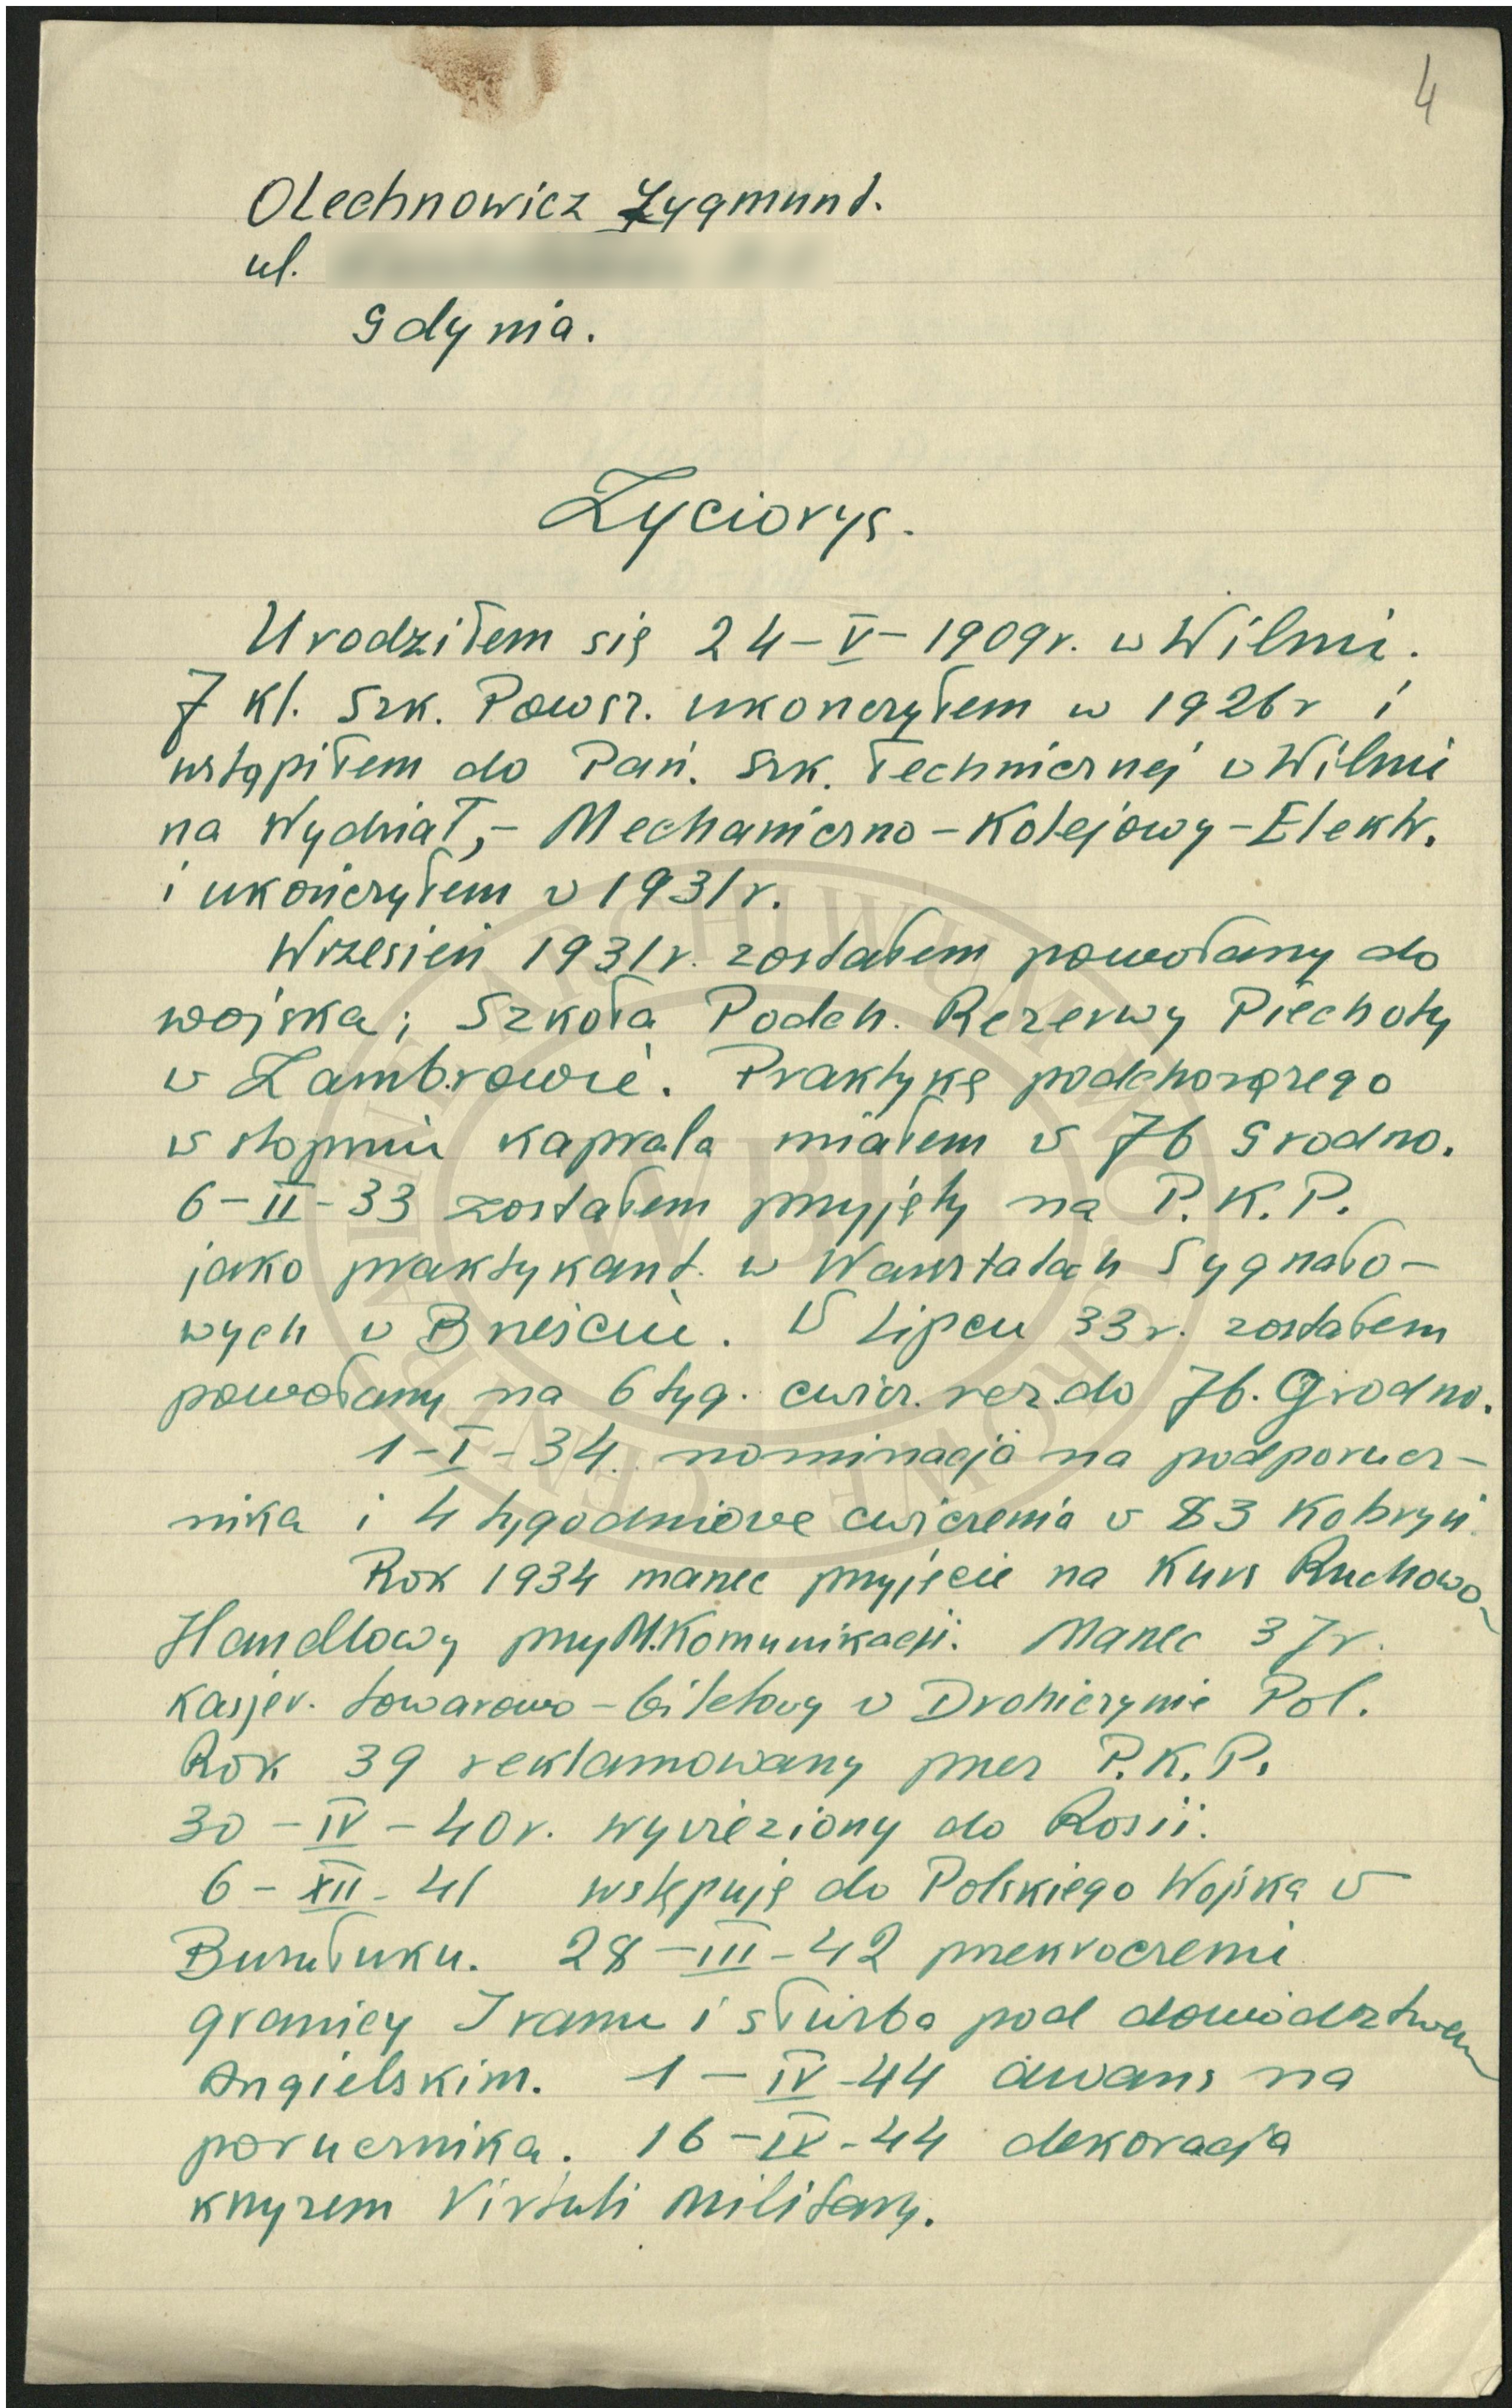 4
Olechnowicz Zygmunt.
ul.
Gdynia.
Życiorys.
Urodziłem się 24-V-1909r. w Wilnie.
7 kl. Szk. Powsz. ukonczyłem w 1926r i
wstąpiłem do Pań. Szk. Technicznej w Wilnie
na Wydział,- Mechaniczno-Kolejowy-Elektr.
i ukończyłem w 1931r.
Wrzesień 1931r. zostałem powołany do
wojska; Szkoła Podch. Rezerwy Piechoty
w Zambrowie. Praktykę podchorążego
w stopniu kaprala miałem w 76 Grodno.
6-II-33 zostałem przyjęty na P.K.P.
jako praktykant w Warsztatach Sygnało-
wych w Brześciu. W Lipcu 33r. zostałem
powołany na 6 tyg. cwicz. rez. do 76. Grodno.
1-I-34. nominacja na podporucz-
nika i 4 tygodniowe cwiczenia w 83 Kobryń.
Rok 1934 marzec przyjęcie na Kurs Ruchowo-
Handlowy przy M.Komunikacji. Marzec 37r.
kasjer. towarowo-biletowy w Drohiczynie Pol.
Rok 39 reklamowany przez P.K.P.
30-IV-40r. wywieziony do Rosii.
6-XII-41 wstępuję do Polskiego Wojska w
Buzułuku. 28-III-42 przekroczenie
granicy Iranu i służba pod dowództwem
Angielskim. 1-IV-44 awans na
porucznika. 16-IX-44 dekoracja
krzyzem Virtuti Military.
ARCHIWUM
WBH